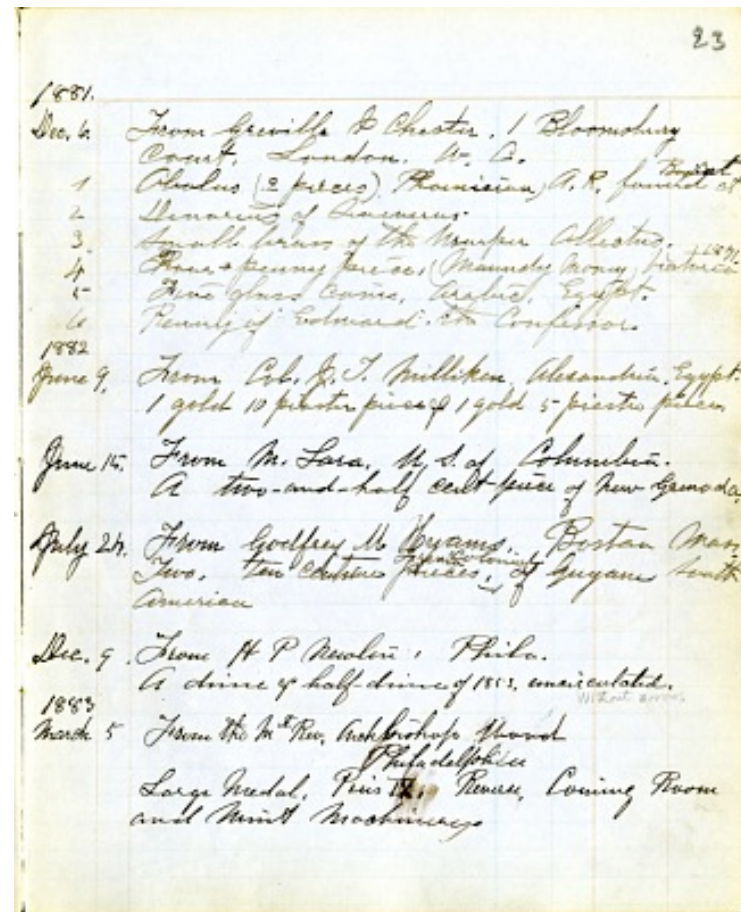 23
1881.
Dec. 6. From Greville J Chester. 1 Bloomsbury
Court, London. W. C.
1 Obolus (2 pieces) Phoenician, A.R. found at Beyrout
2 Denarius of Severus.
3 Small brass of the Usurper Allectus.
4 Four-penny piece, (Maundy Money) Victoria 1871.
5 Five glass coins, Arabic, Egypt.
6 Penny of Edward the Confessor.
1882
June 9. From Col. J. T. Milliken, Alexandria, Egypt.
1 gold 10 piastre piece & 1 gold 5 piastre piece
June 15. From M. Lara, U, S. of Columbia.
A two-and-half cent piece of New Grenada.
July 24. From Godfrey M Hyams, Boston Mass
Two, ten centime pieces, of Guyane South
American
Dec. 9. From H P Newlin, Phila.
A dime & half-dime of 1853, uncirculated.
Without arrows.
1883
March 5 From the Mt Rev. Archbishop Wood
Philadelphia
Large Medal, Pius IX. Reverse, Coining Room
and Mint Machinery